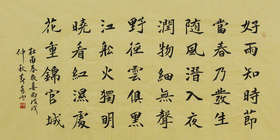 好雨知時節
當春乃發生
隨風潛入夜
潤物細無聲
野徑雲俱黑
江船火獨明
曉看紅濕處
花重錦官城
杜甫春夜喜雨戊戌
仲秋